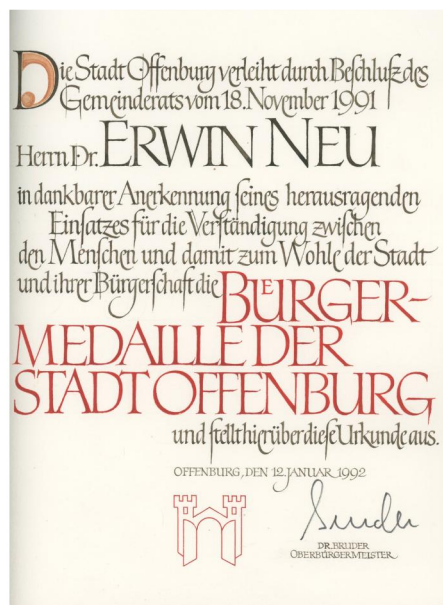 Die Stadt Offenburg verleiht durch Beſchluſz des
Gemeinderats vom 18. November 1991
Herrn Dr. ERWIN NEU
in dankbarer Anerkennung ſeines herausragenden
Einſatzes für die Verſtändigung zwiſchen
den Menſchen und damit zum Wohle der Stadt
und ihrer Bürgerſchaft die BUͤRGER-
MEDAILLE DER
STADT OFFENBURG
und ſtellt hierüber dieſe Urkunde aus.
OFFENBURG, DEN 12. JANUAR 1992
Bruder
DR. BRUDER
OBERBÜRGERMEISTER